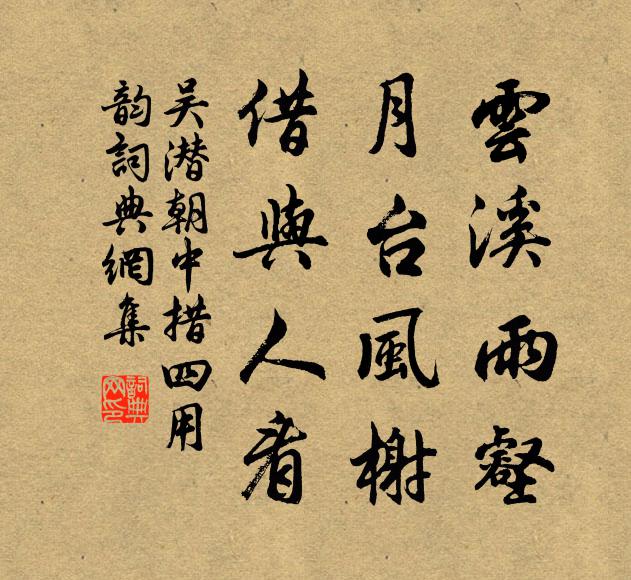 雲溪雨壑
月台風榭
借與人看
吴潜朝中措四用
韵詞典網集
詞典
网印